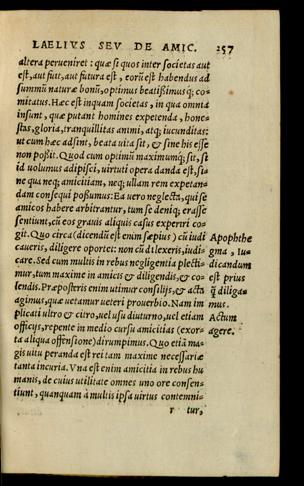 LAELIVS SEV DE AMIC. 257
altera perueniret : quæ si quos inter societas aut
est, aut fuit, aut futura est, eorũ est habendus ad
summũ naturæ bonũ, optimus beatißimusq́; co-
mitatus. Hæc est inquam societas, in qua omnia
insunt, quæ putant homines expetenda, hone-
stas, gloria, tranquillitas animi, atq; iucunditas:
ut cum hæc adsint, beata uita sit, & sine his esse
non poßit. Quod cum optimũ maximumq́; sit, si
id uolumus adipisci, uirtuti opera danda est, si-
ne qua neq; amicitiam, neq; ullam rem expetan-
dam consequi poßumus: Ea uero neglecta, qui se
amicos habere arbitrantur, tum se deniq; erasse
sentiunt, cũ eos grauis aliquis casus experiri co-
git. Quo circa (dicendũ est enim sæpius) cũ iudi
caueris, diligere oportet: non cũ dilexeris, iudi-
care. Sed cum multis in rebus negligentia plecti-
mur, tum maxime in amicis & diligendis, & co-
lendis. Præposteris enim utimur consilijs, & acta
agimus, quæ uetamur ueteri prouerbio. Nam im
plicati ultro & citro, uel usu diuturno, uel etiam
officijs, repente in medio cursu amicitias (exor-
ta aliqua offensione) dirumpimus. Quo etiã ma-
gis uitu peranda est rei tam maxime necessariæ
tanta incuria. Vna est enim amicitia in rebus hu
manis, de cuius utilitate omnes uno ore consen-
tiunt, quanquam à multis ipsa uirtus contemni-
r tur,
Apophthe
gma, Iu-
dicandum
est prius
q̃ diliga-
mus.
Actum
agere.